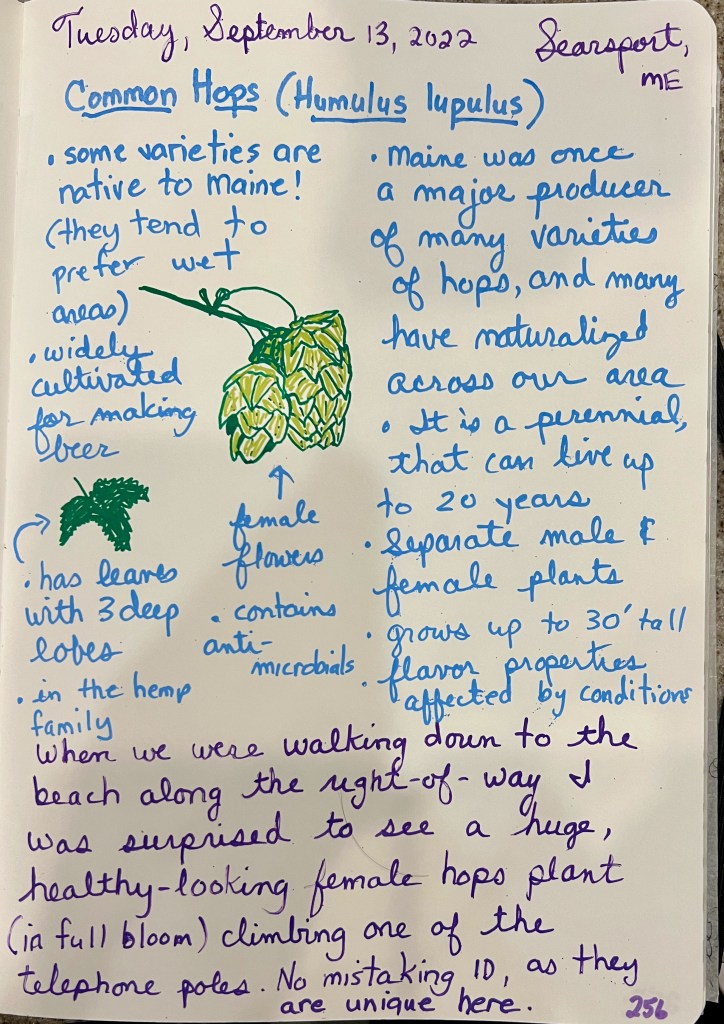 Tuesday, September 13, 2022
Searsport,
ME
Common Hops (Humulus lupulus)
• some varieties are
native to Maine!
(they tend to
prefer wet
areas)
• widely
cultivated
for making
beer
• has leaves
with 3 deep
lobes
• in the hemp
family
female
flowers
• contains
anti-
microbials
• Maine was once
a major producer
of many varieties
of hops, and many
have naturalized
across our area
• It is a perennial,
that can live up
to 20 years
• Separate male &
female plants
• grows up to 30' tall
• flavor properties
affected by conditions
When we were walking down to the
beach along the right-of-way I
was surprised to see a huge,
healthy-looking female hops plant
(in full bloom) climbing one of the
telephone poles. No mistaking ID, as they
are unique here.
256